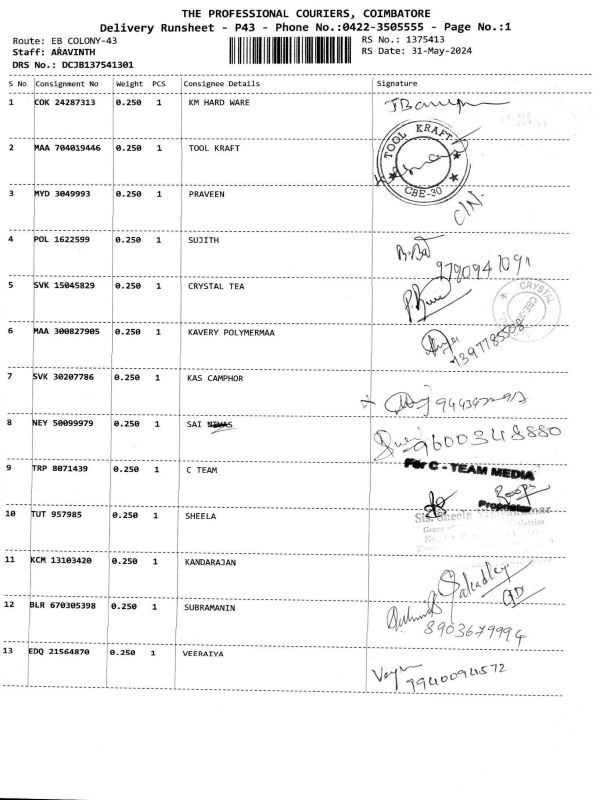 THE PROFESSIONAL COURIERS, COIMBATORE
Delivery Runsheet - P43 - Phone No.:0422-3505555 - Page No.:1
Route: EB COLONY-43 RS No.: 1375413
Staff: ARAVINTH RS Date: 31-May-2024
DRS No.: DCJB137541301
S No Consignment No Weight PCS Consignee Details Signature
1 COK 24287313 0.250 1 KM HARD WARE
2 MAA 704019446 0.250 1 TOOL KRAFT
TOOL KRAFT
CBE-30
3 MYD 3049993 0.250 1 PRAVEEN
4 POL 1622599 0.250 1 SUJITH
5 SVK 15045829 0.250 1 CRYSTAL TEA
CRYSTAL
6 MAA 300827905 0.250 1 KAVERY POLYMERMAA
7 SVK 30207786 0.250 1 KAS CAMPHOR
8 NEY 50099979 0.250 1 SAI NIVAS
9600348880
9 TRP 8071439 0.250 1 C TEAM
For C - TEAM MEDIA
Proprietor
10 TUT 957985 0.250 1 SHEELA
Sis. Sheela
11 KCM 13103420 0.250 1 KANDARAJAN
12 BLR 670305398 0.250 1 SUBRAMANIN
8903679994
13 EDQ 21564870 0.250 1 VEERAIYA
9940094572